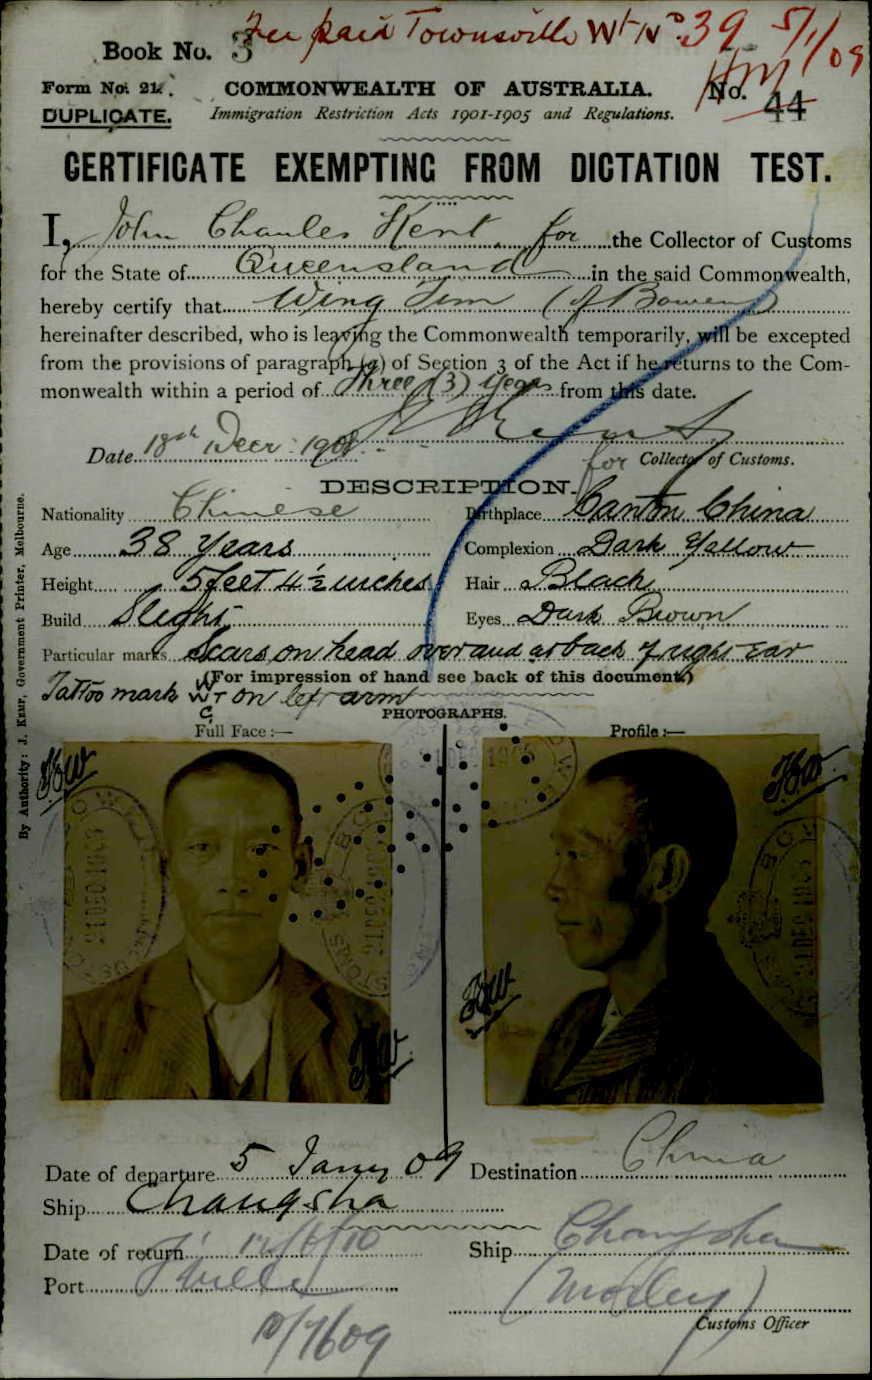 Fee paid Townsville Wt No. 39 5/1/09
Book No. 3
Form No. 21.
COMMONWEALTH OF AUSTRALIA.
No. 44
DUPLICATE.
Immigration Restriction Acts 1901-1905 and Regulations.
CERTIFICATE EXEMPTING FROM DICTATION TEST.
I, John Charles Kent, for the Collector of Customs
for the State of Queensland in the said Commonwealth,
hereby certify that Wing (of Bowen)
hereinafter described, who is leaving the Commonwealth temporarily, will be excepted
from the provisions of paragraph (a) of Section 3 of the Act if he returns to the Com-
monwealth within a period of Three (3) years from this date.
Date 18th Decr 1908
for Collector of Customs.
DESCRIPTION.
Nationality Chinese
Birthplace Canton China
Age 38 Years
Complexion Dark Yellow
Height 5 feet 4 ½ inches
Hair Black
Build Slight
Eyes Dark Brown
Particular marks Scars on head over and at back of right ear
(For impression of hand see back of this document.)
Tattoo mark on left arm
PHOTOGRAPHS.
Full Face :—
Profile :—
21 DEC 1908
By Authority: J. Kemp, Government Printer, Melbourne.
Date of departure 5 Jany 09
Destination China
Ship Changsha
Date of return
Ship Changsha
Port
Customs Officer